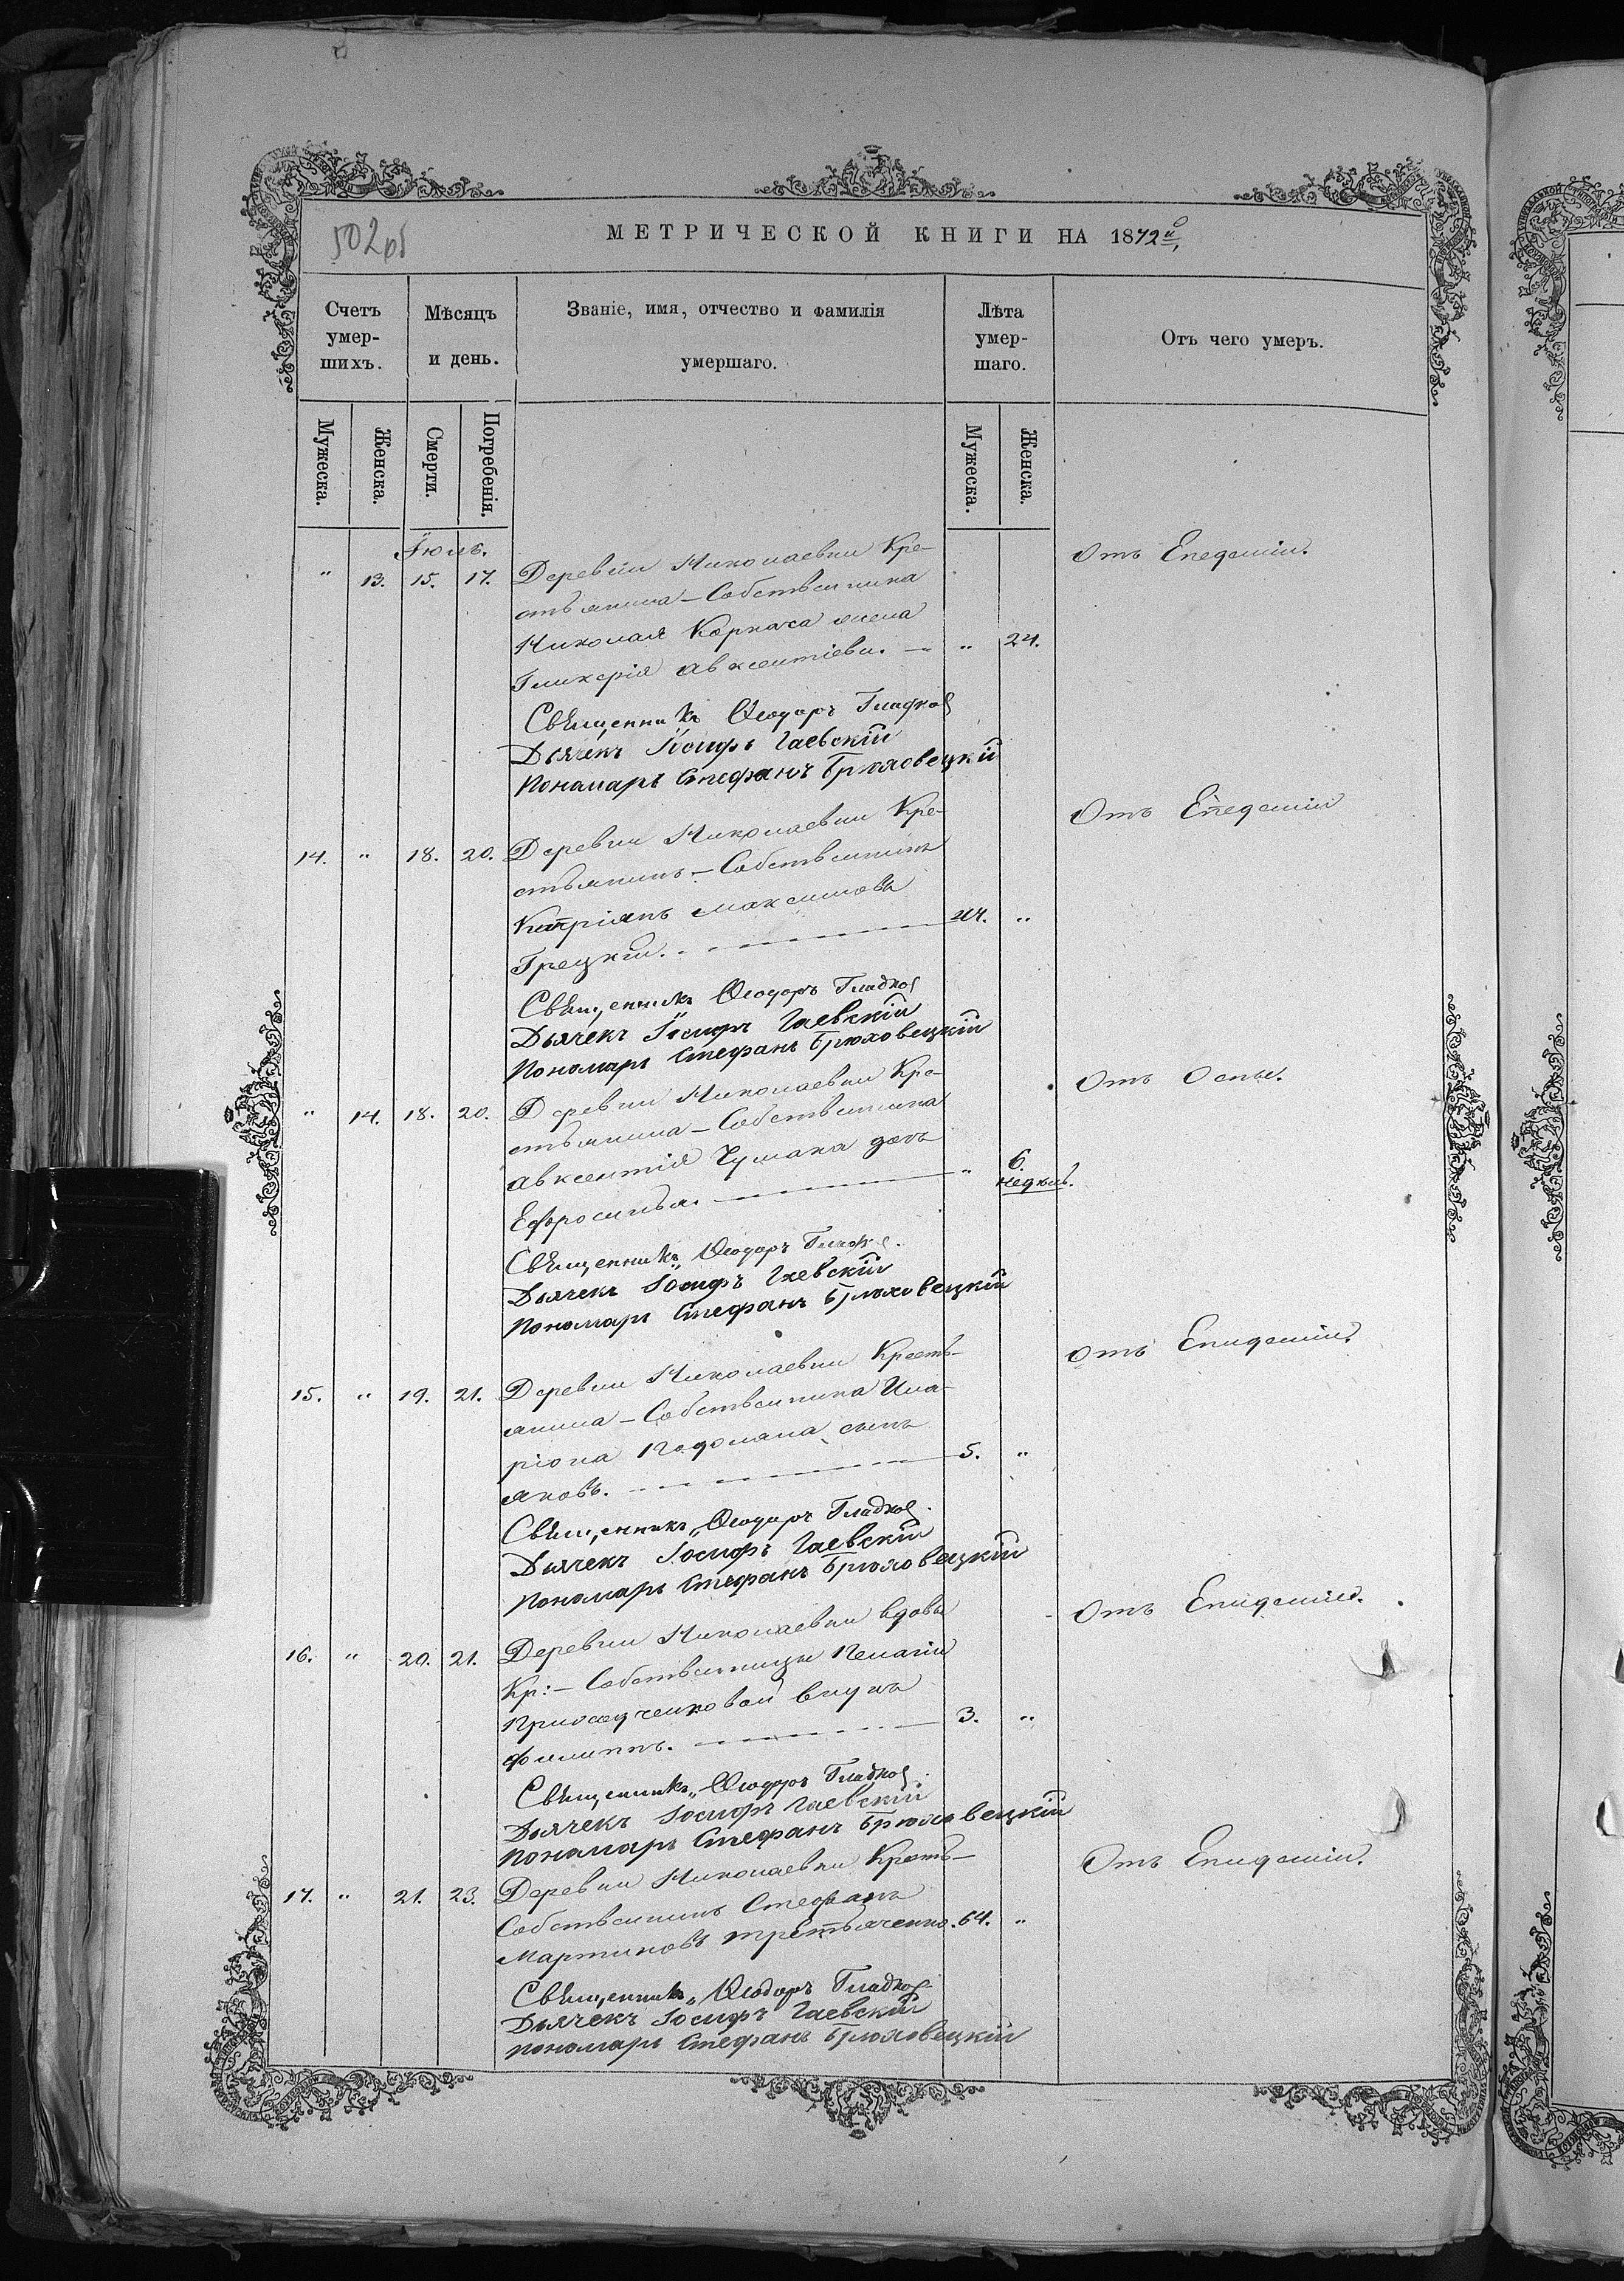 502об
МЕТРИЧЕСКОЙ КНИГИ НА 1872й
Счетъ умершихъ.
Мѣсяцъ и день.
Званіе, имя, отчество и фамилія умершаго.
Лѣта умершаго.
Отъ чего умеръ.
Мужеска.
Женска.
Смерти.
Погребенія.
Мужеска.
Женска.
Іюль.
" 13. 15. 17. Деревни Николаевки Кре- Отъ Епедеміи.
стьянина – Собственника
Николая Корноса жена
Гликерія Авксентіева. — " 24.
Священникъ Ѳеодоръ Гладкой
Дьячекъ Іосифъ Гаевскій
Пономарь Стефанъ Брюховецкій
14. " 18. 20. Деревни Николаевки Кре- Отъ Епедеміи
стьянинъ – Собственникъ
Кипріянъ Максимовъ
Грецкій. 44. "
Священникъ Ѳеодоръ Гладкой
Дьячекъ Іосифъ Гаевскій
Пономарь Стефанъ Брюховецкій
" 14. 18. 20. Деревни Николаевки Кре- Отъ Оспы.
стьянина – Собственника
Авксентія Чумака дочь
Ефросинья. " 6. недѣль.
Священникъ Ѳеодоръ Гладкой.
Дьячекъ Іосифъ Гаевскій
Пономарь Стефанъ Брюховецкій
15. " 19. 21. Деревни Николаевки Кресть- Отъ Епидеміи.
янина – Собственника Ила-
ріона Подоляна сынъ
Яковъ. 5. "
Священникъ Ѳеодоръ Гладкой.
Дьячекъ Іосифъ Гаевскій
Пономарь Стефанъ Брюховецкій
16. " 20. 21. Деревни Николаевки вдовы Отъ Епидеміи.
Кр: – Собственницы Пелагіи
внукъ
Филиппъ. 3. "
Священникъ Ѳеодоръ Гладкой.
Дьячекъ Іосифъ Гаевскій
Пономарь Стефанъ Брюховецкій
17. " 21. 23. Деревни Николаевки Кресть- Отъ Епидеміи.
Собственникъ Стефанъ
Мартиновъ Третьяченко. 64. "
Священникъ Ѳеодоръ Гладкой
Дьячекъ Іосифъ Гаевскій
Пономарь Стефанъ Брюховецкій